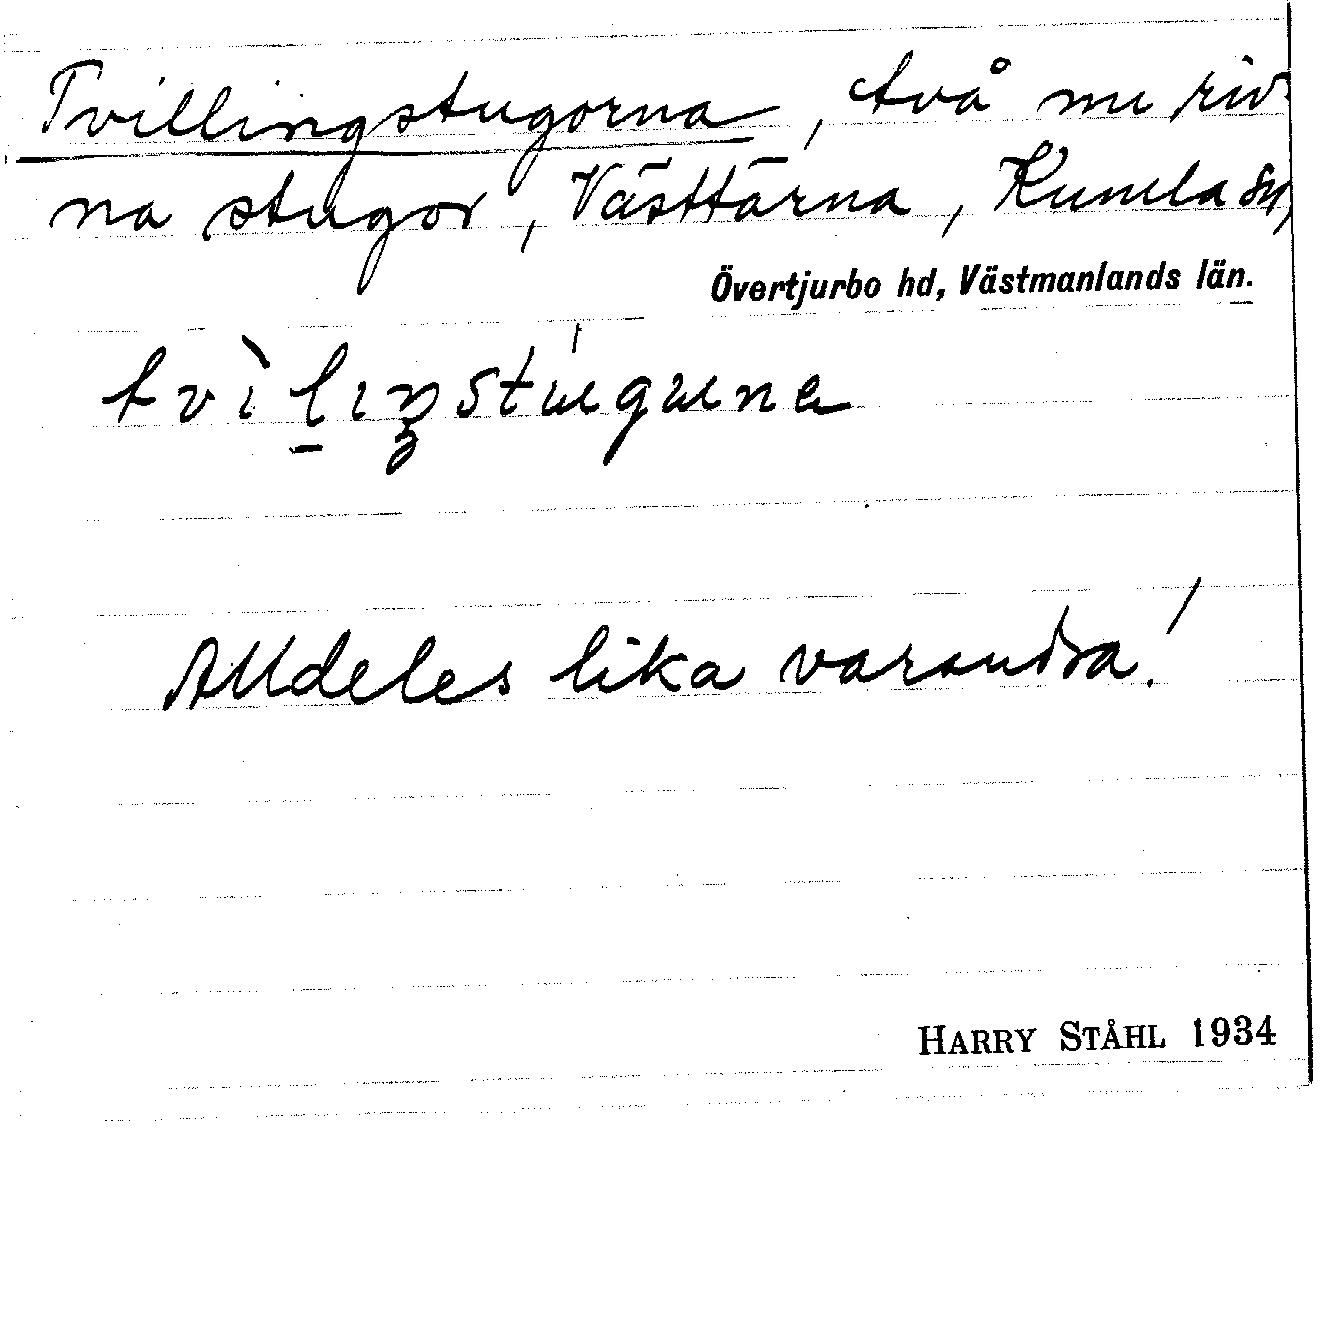 Tvillingstugorna, två nu riv-
na stugor, Västtärna, Kumla sn,
Övertjurbo hd, Västmanlands län.
Alldeles lika varandra!
HARRY STÅHL 1934